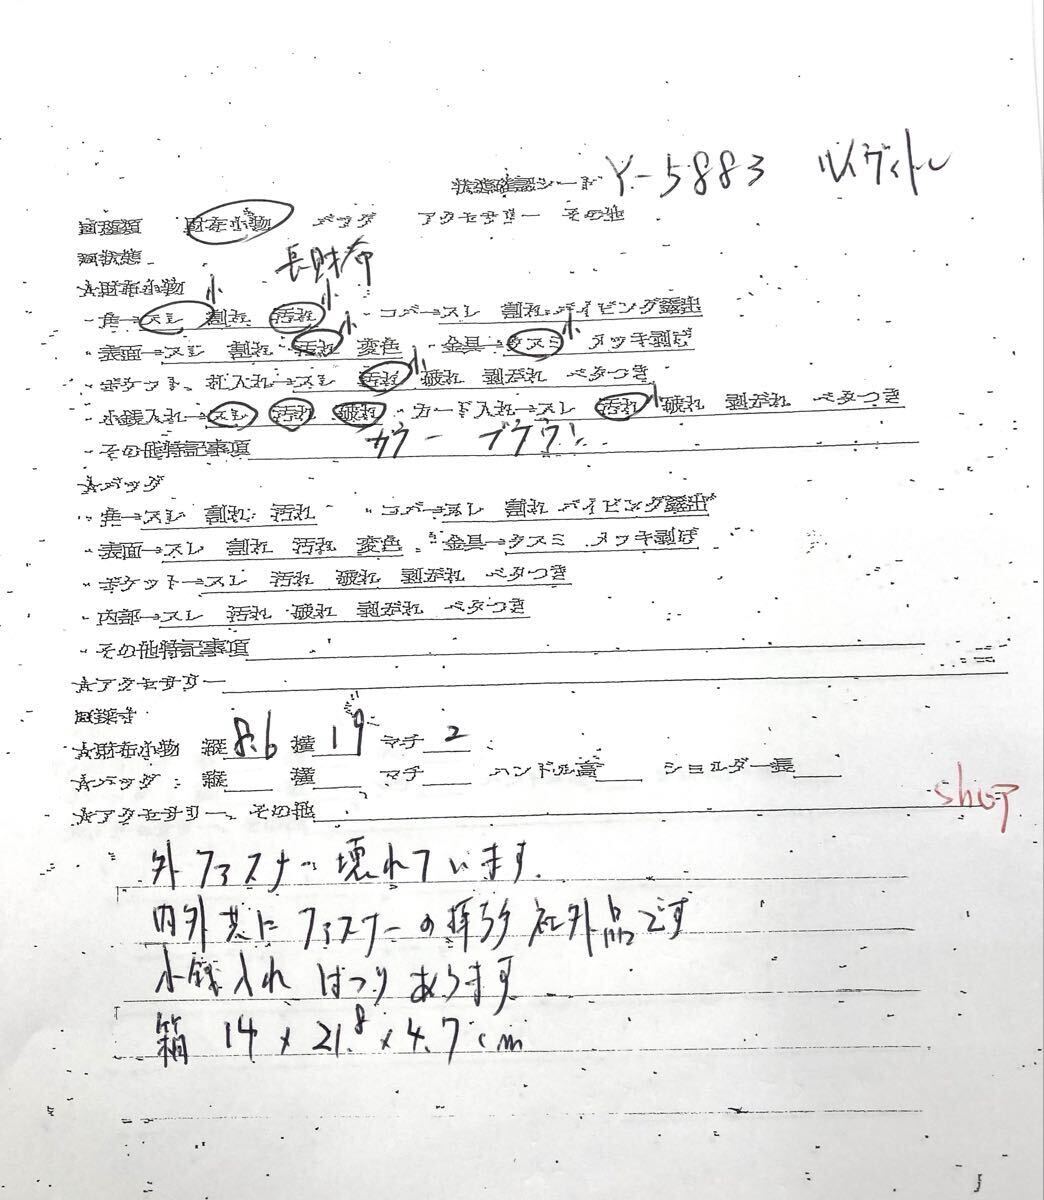 状態確認シート Y-5883 ルイヴィトン
財布小物 バッグ アクセサリー その他
状態 長財布
財布小物 小 小
・角→スレ 割れ 汚れ ・コバ→スレ 割れ パイピング露出
小 小
・表面→スレ 割れ 汚れ 変色 ・金具→クスミ メッキ剥げ
・ポケット、札入れ→スレ 汚れ 小 破れ 剥がれ ベタつき
・小銭入れ→スレ 汚れ 破れ ・カード入れ→スレ 汚れ 小 破れ 剥がれ ベタつき
・その他特記事項 カラー ブラウン
バッグ
・角→スレ 割れ 汚れ ・コバ→スレ 割れ パイピング露出
・表面→スレ 割れ 汚れ 変色 ・金具→クスミ メッキ剥げ
・ポケット→スレ 汚れ 破れ 剥がれ ベタつき
・内部→スレ 汚れ 破れ 剥がれ ベタつき
・その他特記事項
アクセサリー
採寸
財布小物 縦 8.6 横 19 マチ 2
バッグ 縦 横 マチ ハンドル高 ショルダー長
アクセサリー、その他
shop
外ファスナー壊れています。
内外共にファスナーの 社外品です
小銭入れ あります
箱 14×21.8×4.7cm